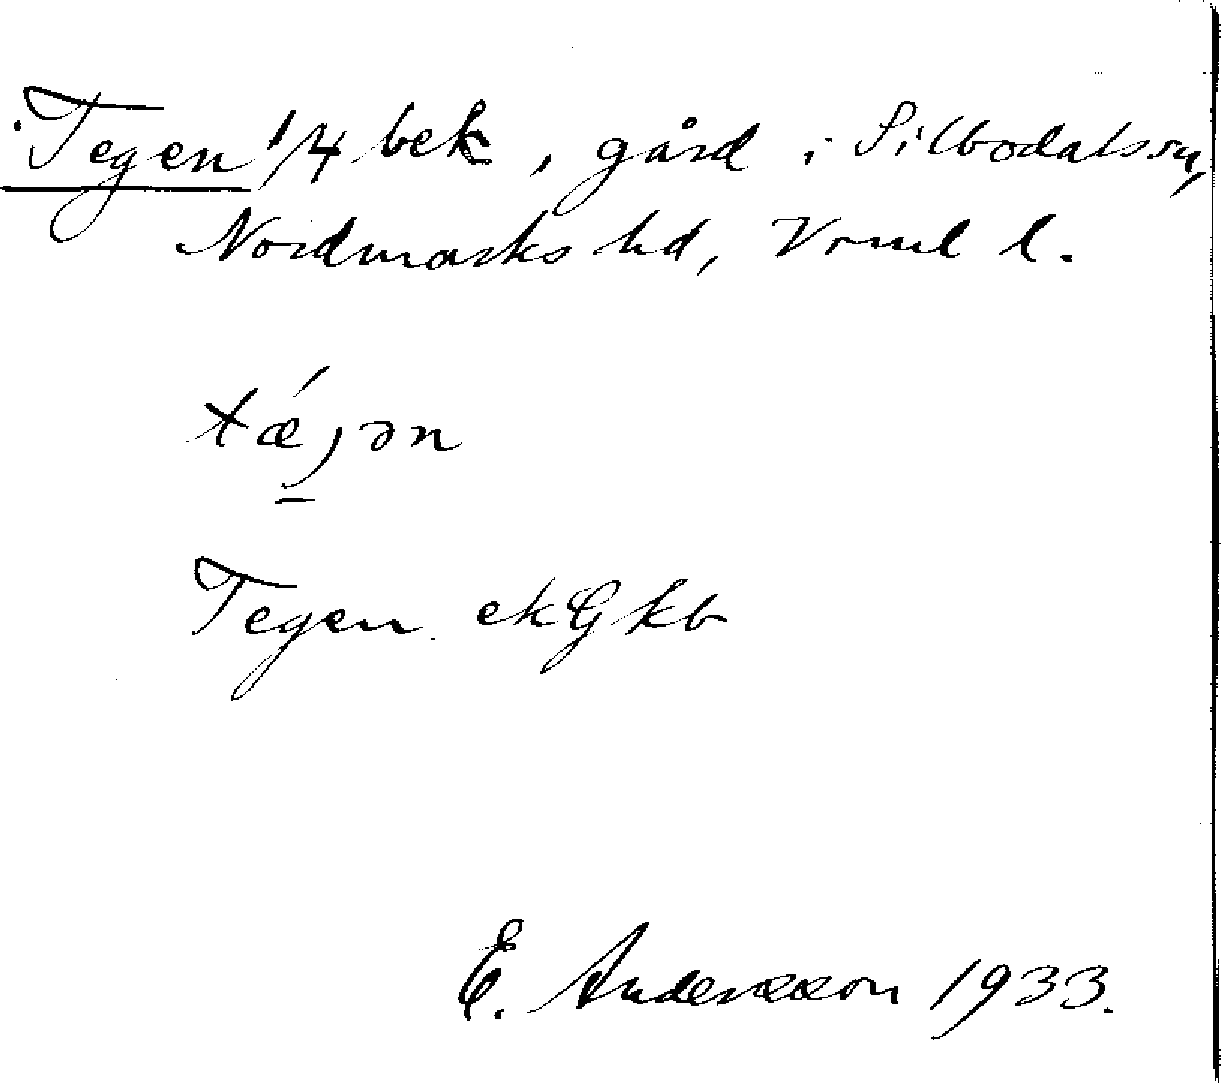 Tegen 1/4 bek, gård i Silbodals sn,
Nordmarks hd, Vrml l.
tǽjən
Tegen ekGkb
E. Andersson 1933.